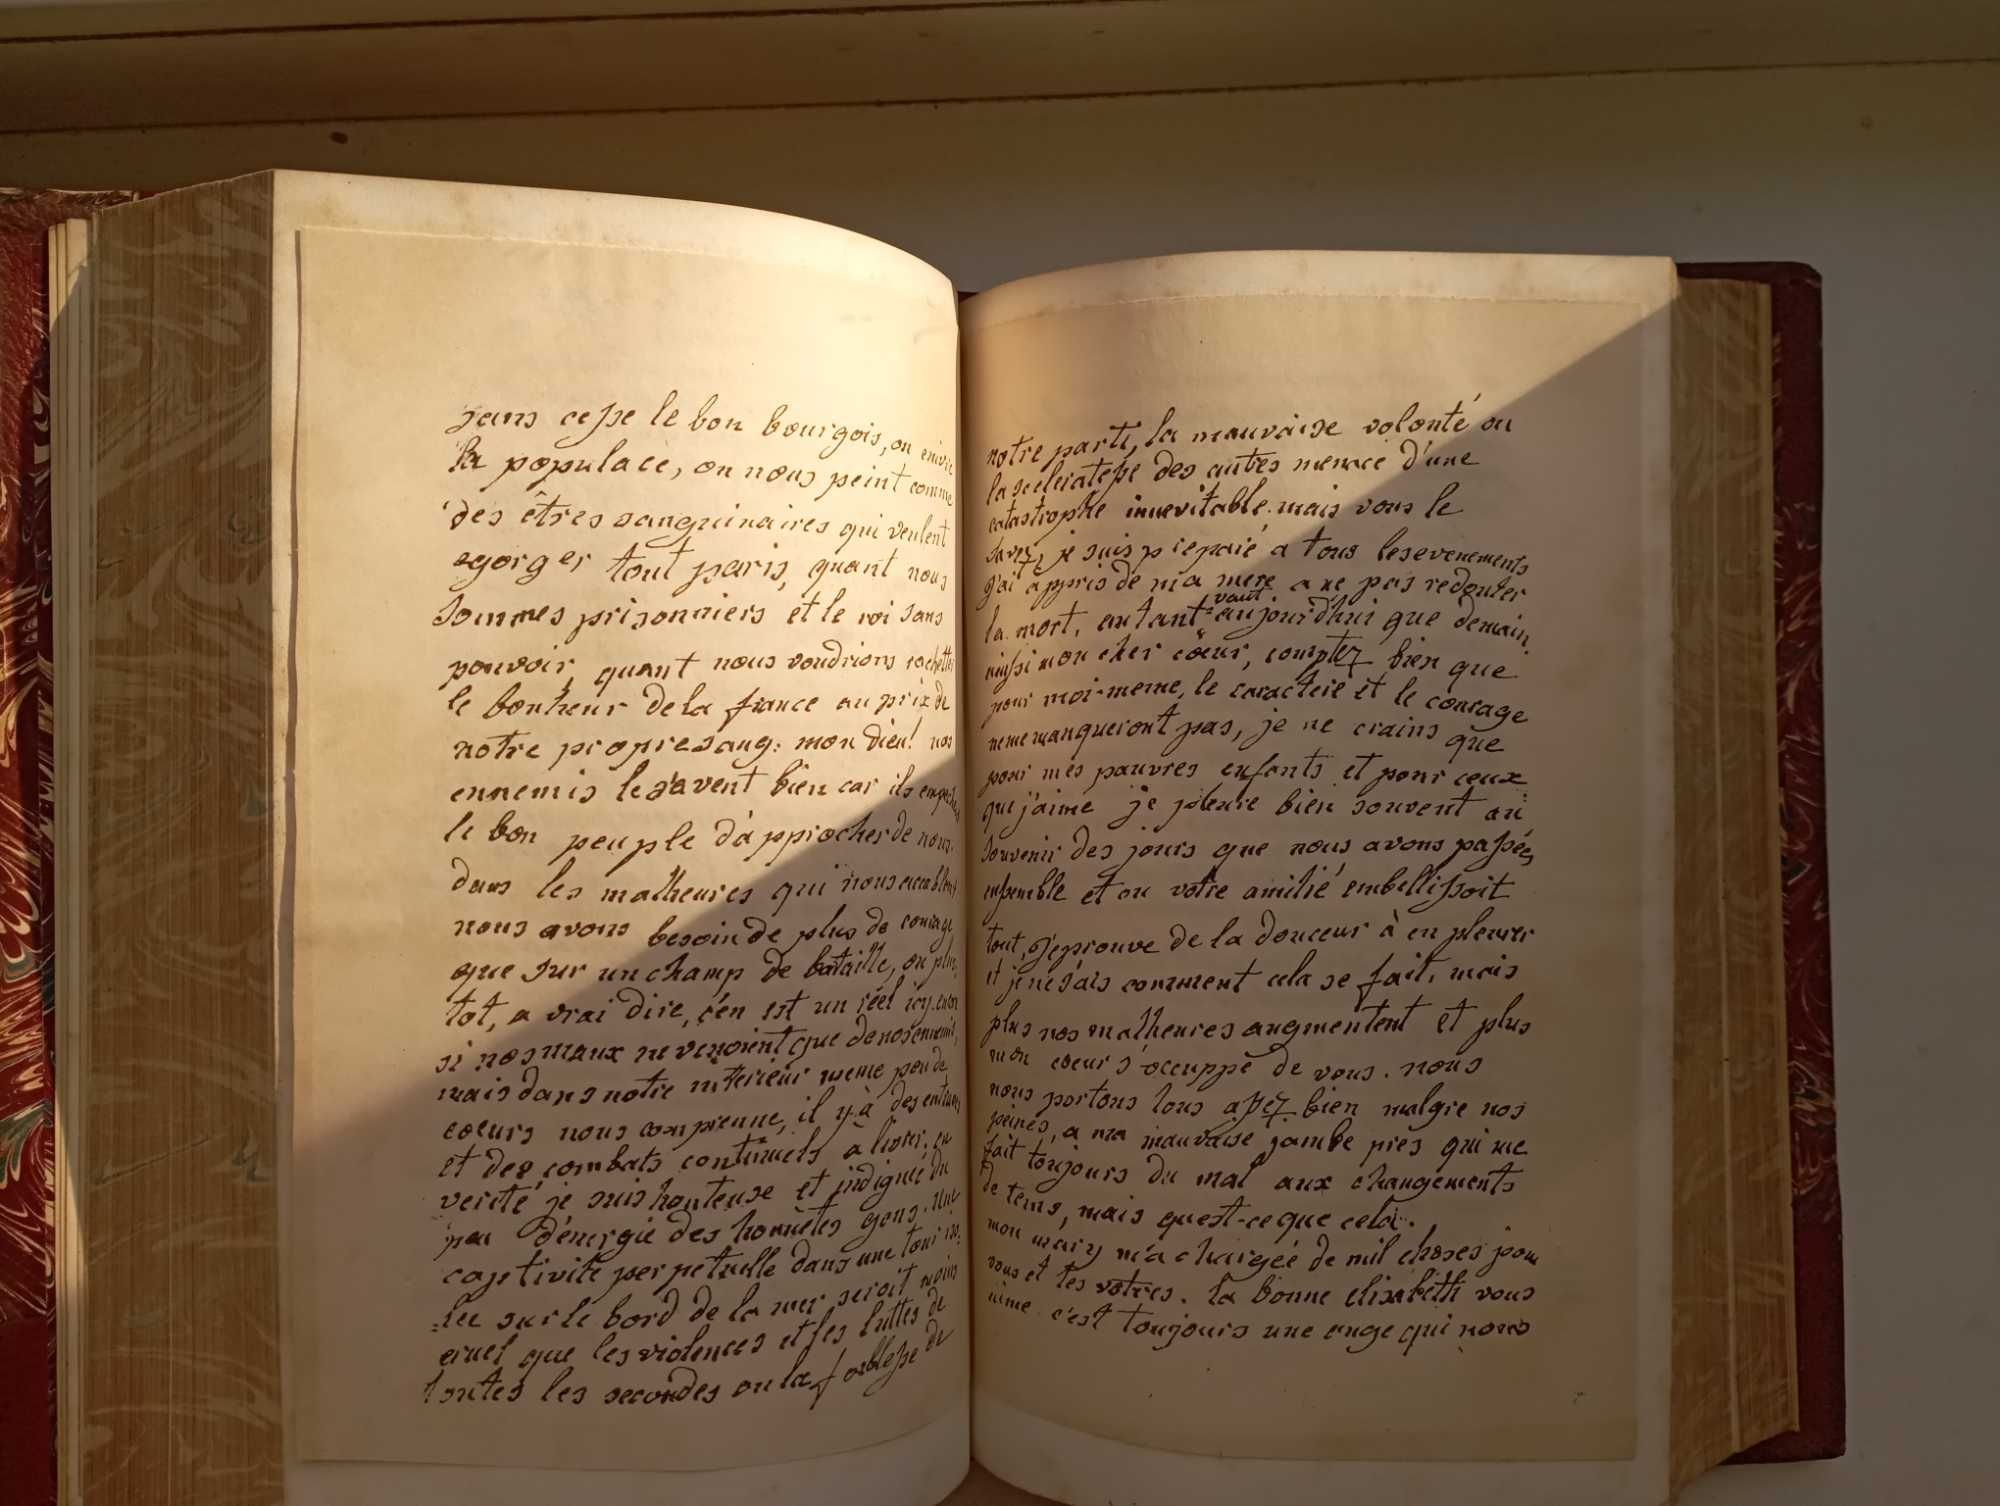 sans cesse le bon bourgois, on enivre
la populace, on nous peint comme
des êtres sanguinaires qui veulent
egorger tout paris, quant nous
sommes prisonniers et le roi sans
pouvoir, quant nous voudrions rachetter
le bonheur de la france au prix de
notre propre sang: mon dieu! nos
ennemis le savent bien car ils empechent
le bon peuple d'approcher de nous.
dans les malheures qui nous accablent
nous avons besoin de plus de courage
que sur un champ de bataille, ou plu-
tot, a vrai dire, ç'en est un réel icy. encor
si nos maux ne venoient que de nos ennemis,
mais dans notre interieur meme peu de
coeurs nous comprenne, il y à des entraves
et des combats continuels à livrer; en
verité je suis honteuse et indignée du
peu d'énergie des honnêtes gens. une
captivité perpetuelle dans une tour iso-
lee sur le bord de la mer seroit moins
cruel que les violences et les luttes de
toutes les secondes ou la foiblesse de
notre parti, la mauvaise volonté ou
la sceleratesse des autres menace d'une
catastrophe inevitable. mais vous le
savez, je suis preparé a tous les evenements
j'ai appris de ma mere a ne pas redouter
la mort, autant vaut aujourd'hui que demain
ainssi mon cher coeur, comptez bien que
pour moi-meme, le caractere et le courage
ne me manqueront pas, je ne crains que
pour mes pauvres enfants et pour ceux
que j'aime je pleure bien souvent au
souvenir des jours que nous avons passées
ensemble et ou votre amitié embellissoit
tout, j'eprouve de la douceur à en pleurer
et je ne sais comment cela se fait, mais
plus nos malheures augmentent et plus
mon coeur s'occuppe de vous. nous
nous portons tous assez bien malgre nos
peines, a ma mauvaise jambe pres qui me
fait toujours du mal aux changements
de tems, mais qu'est-ce que cela.
mon mary m'a chargée de mil choses pour
vous et les votres. la bonne elisabeth vous
aime. c'est toujours une ange qui nous